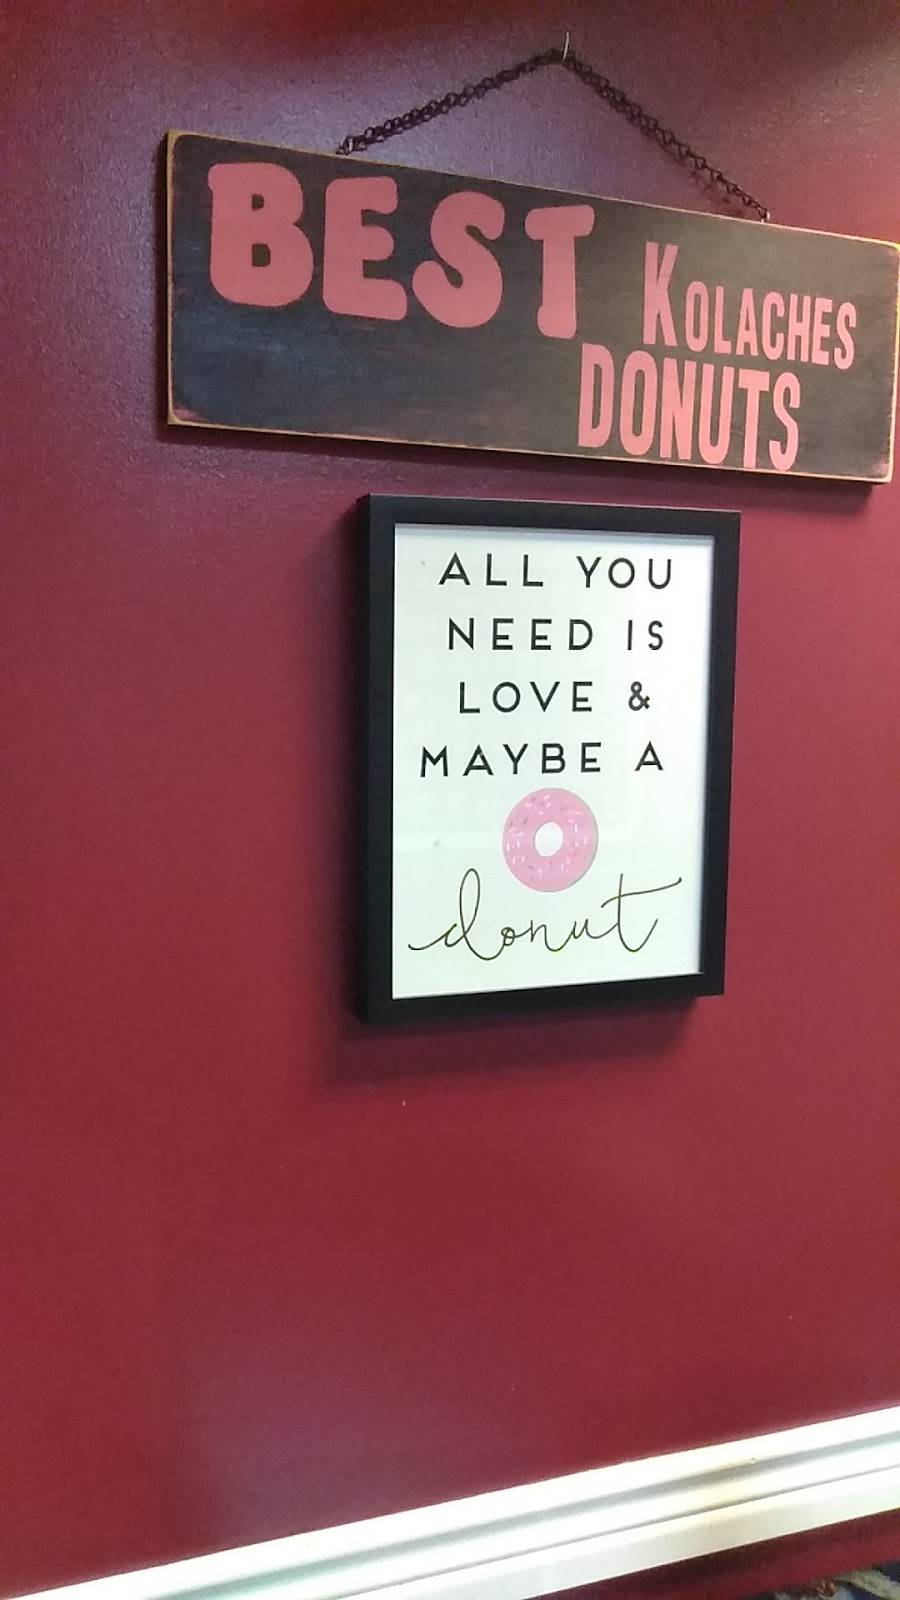 BEST KOLACHES
DONUTS
ALL YOU
NEED IS
LOVE &
MAYBE A
donut